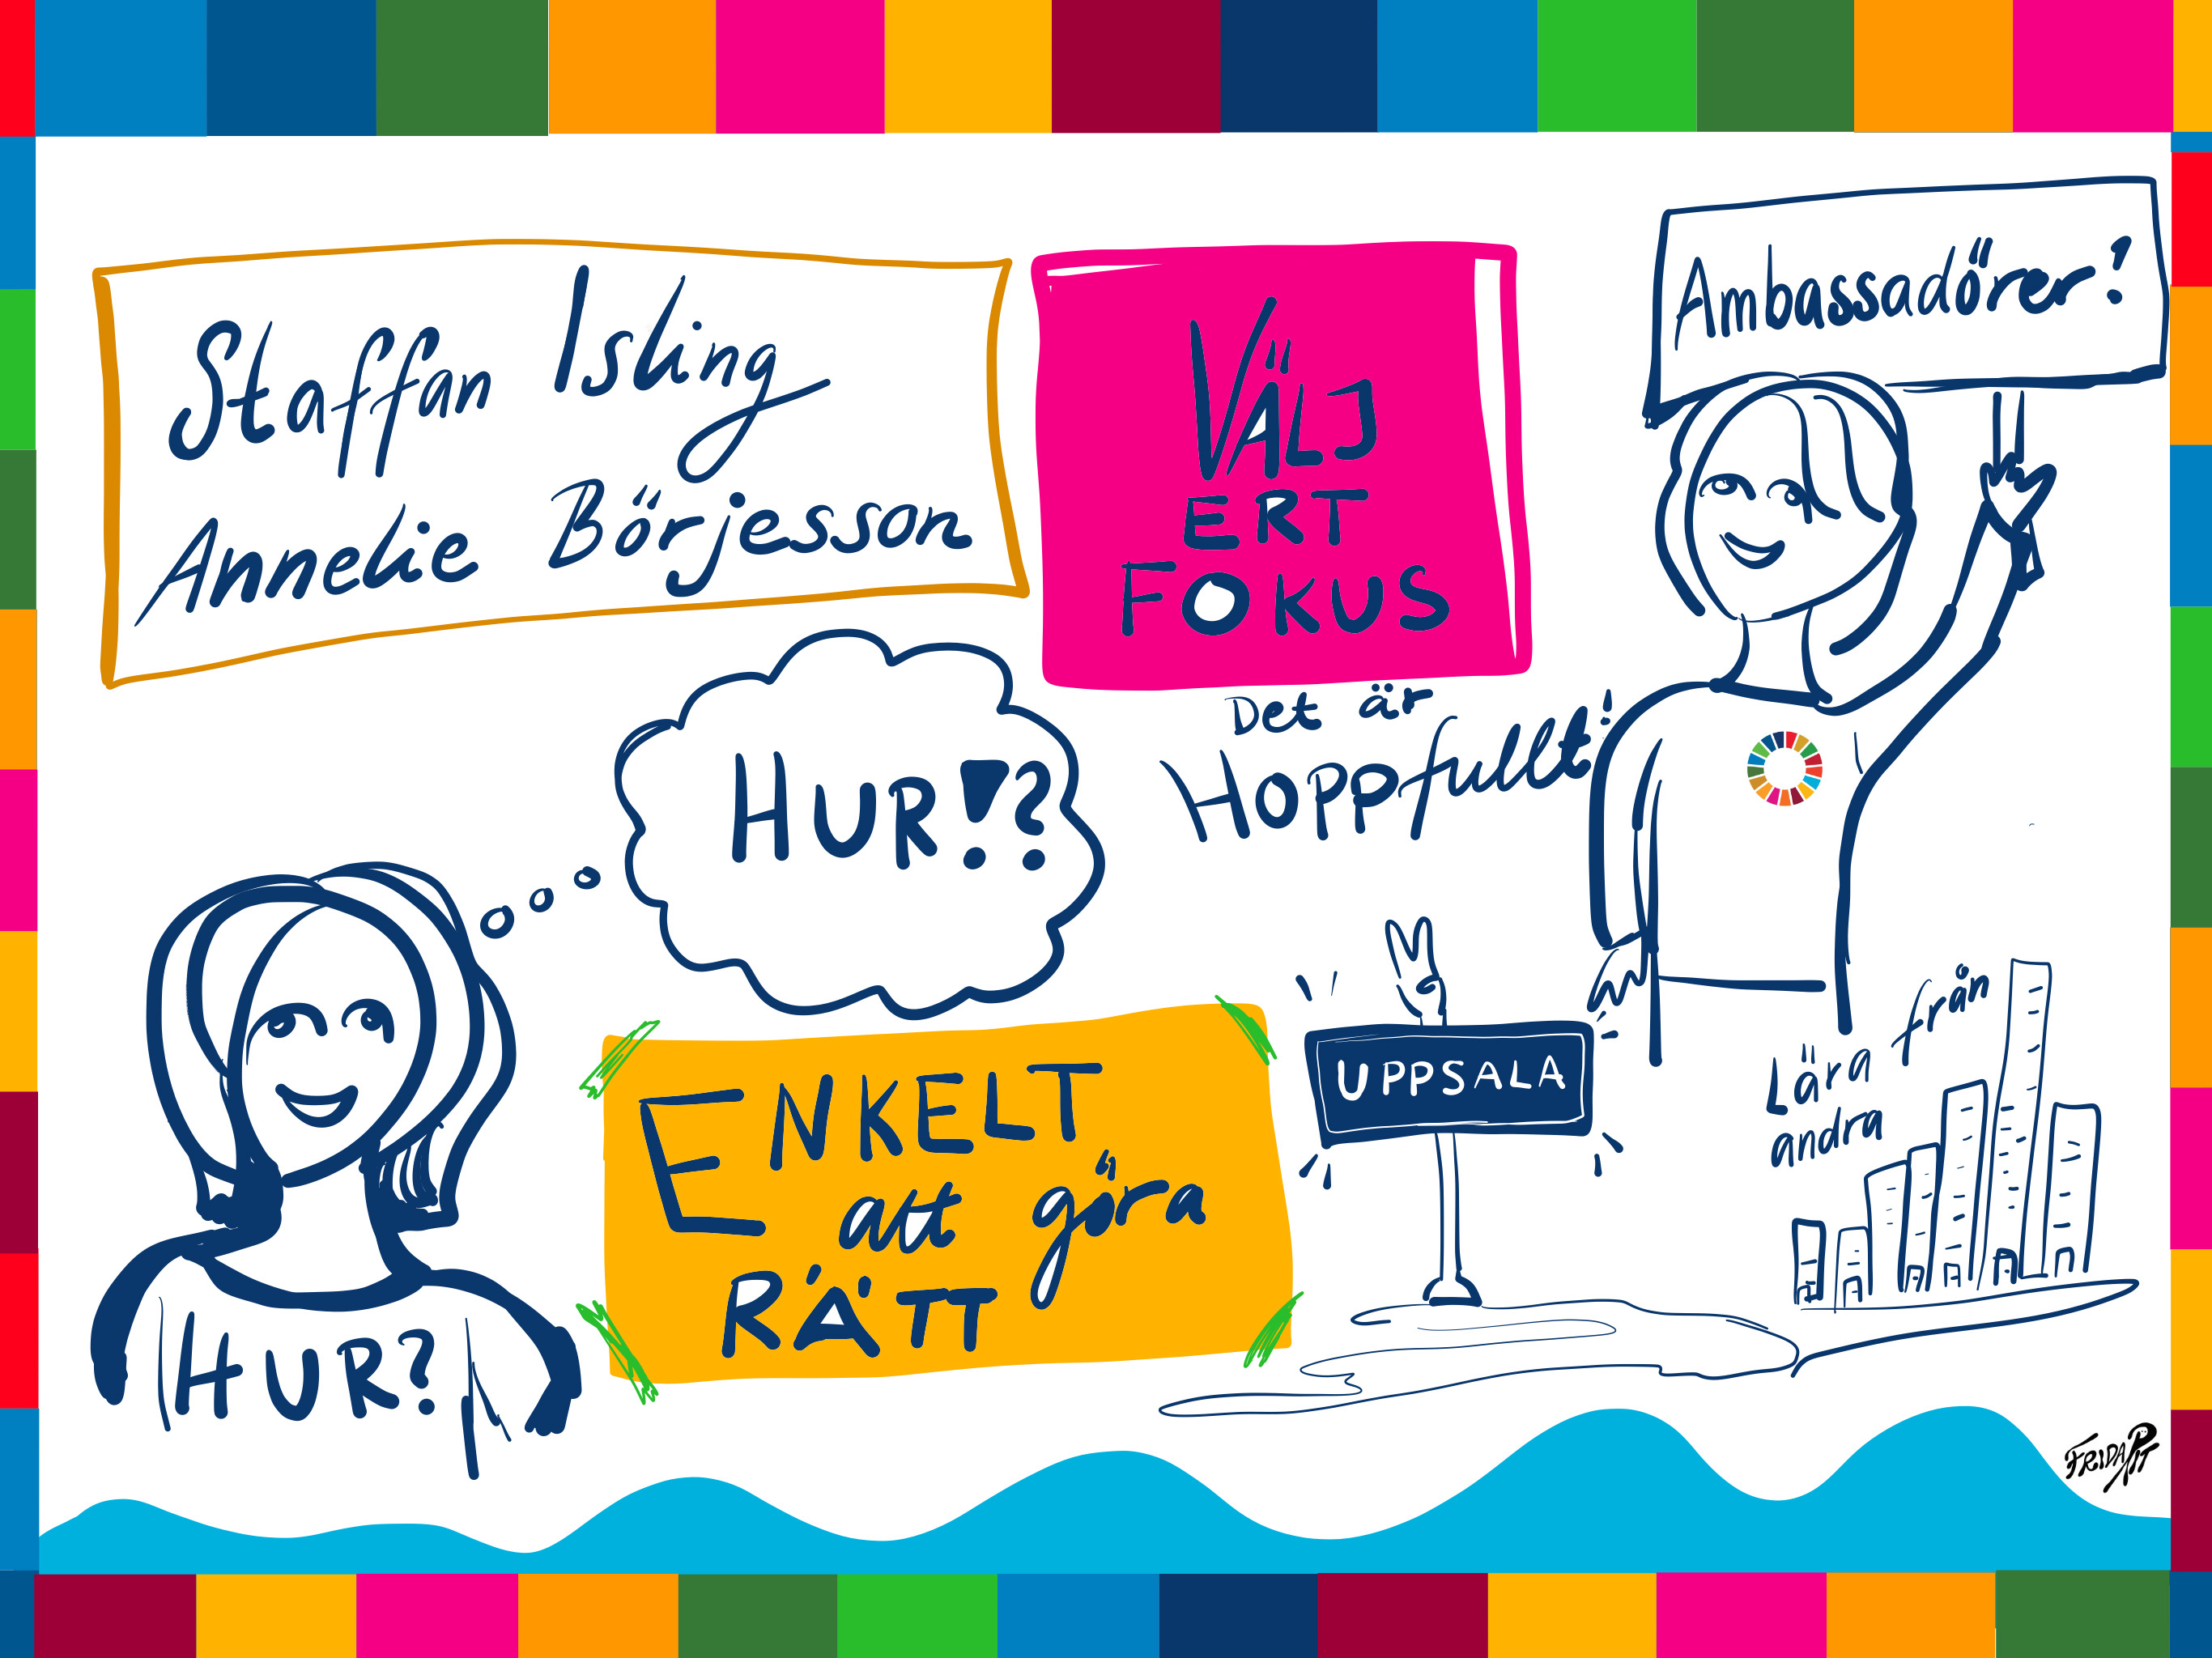 Staffan Isling
Annelie Börjesson
VÄLJ
ERT
FOKUS
Ambassadörer!
Det är
Hoppfullt!
HUR!?
HUR?
ENKELT
att göra
RÄTT
UPPSALA
Lära från
andra
FRIDA P